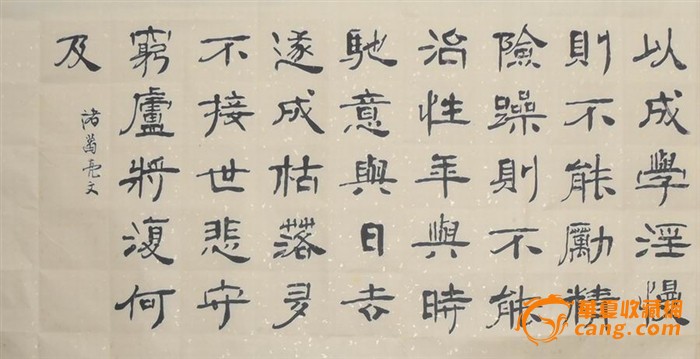 以成學淫慢
則不能勵精
險躁則不能
治性年與時
馳意與日去
遂成枯落多
不接世悲守
窮廬將復何
及
諸葛亮文
華夏收藏網
cang.com